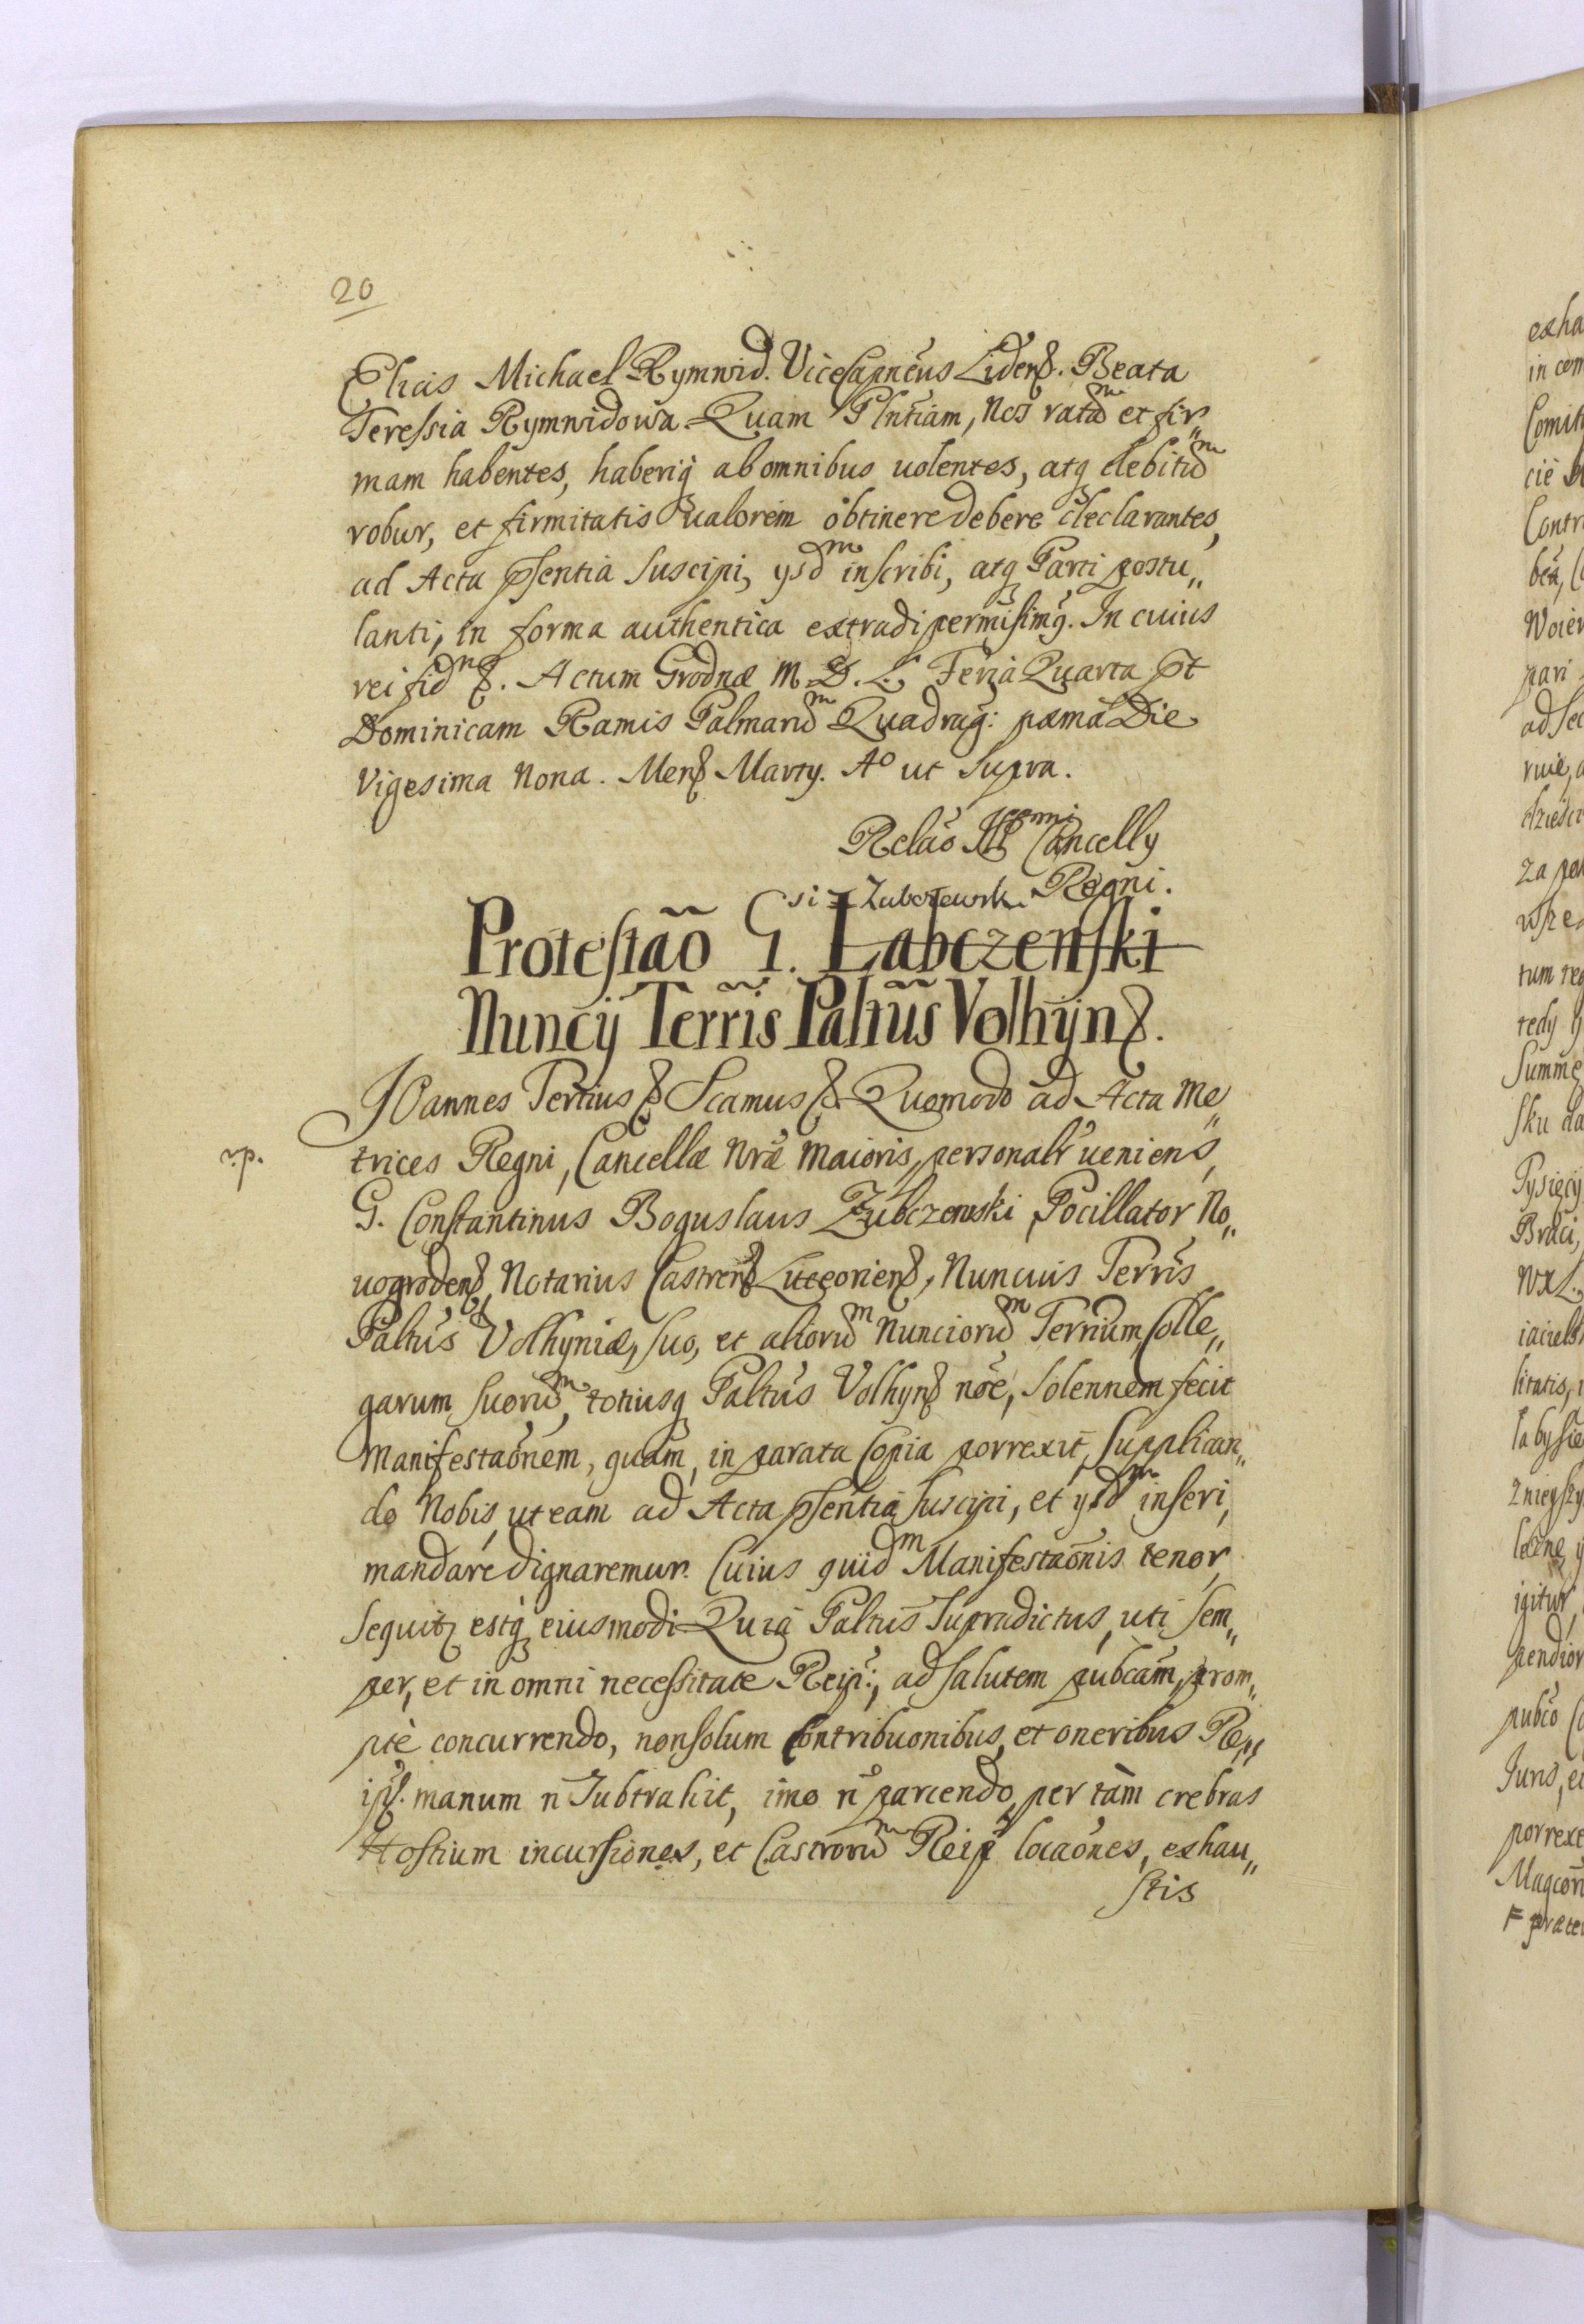 20
Elias Michael Rymwid. ViceCapneus Lidens. Beata
Teressia Rymwidowa. Quam Plntiam, Nos ratam et fir„
mam habentes, haberiq ab omnibus uolentes, atq debitum
robur, et firmitatis ualorem obtinere debere declarantes,
ad Acta psentia suscipi, ysdm inscribi, atq Parti postu„
lanti, in forma authentica extradi permisimq. In cuius
rei fidm &. Actum Grodnæ M. D. L. Feria Quarta pt
Dominicam Ramis Palmarum Quadrag: pxma Die
Vigesima Nona. Mens Marty. Ao ut supra.
Relao Cancelly
Regni.
Protestaõ G. Labczenski
Nuncij Terris Paltũs Volhyn.
JOannes Tertius & Scamus & Quomodo ad Acta Me„
r.p.
trices Regni, Cancellæ Nræ Maioris, personalr ueniens,
G. Constantinus Boguslaus Zubczewski, Pocillator No„
uogrodens, Notarius Castrens Luceoriens, Nuncius Terris
Paltus Volhyniæ, suo, et aliorum Nunciorum Terrium, Colle„
garum suorum, totiusq Paltus Volhyn noe, solennem fecit
Manifestaonem, quam, in parata Copia porrexit, supplican„
do Nobis, ut eam ad Acta psentia suscipi, et ysdm inseri,
mandare dignaremur. Cuius quidm Manifestaonis tenor,
sequitr estq eiusmodi Quia Paltus supradictus, uti sem„
per, et in omni necessitate Reip:, ad salutem pubcam, prom„
ptè concurrendo, non solum Contribuonibus, et oneribus Re„
ip. manum n subtrahit, imo n parcendo, per tàm crebras
Hostium incursiones, et Castrorum Reip locaones, exhau„
stis